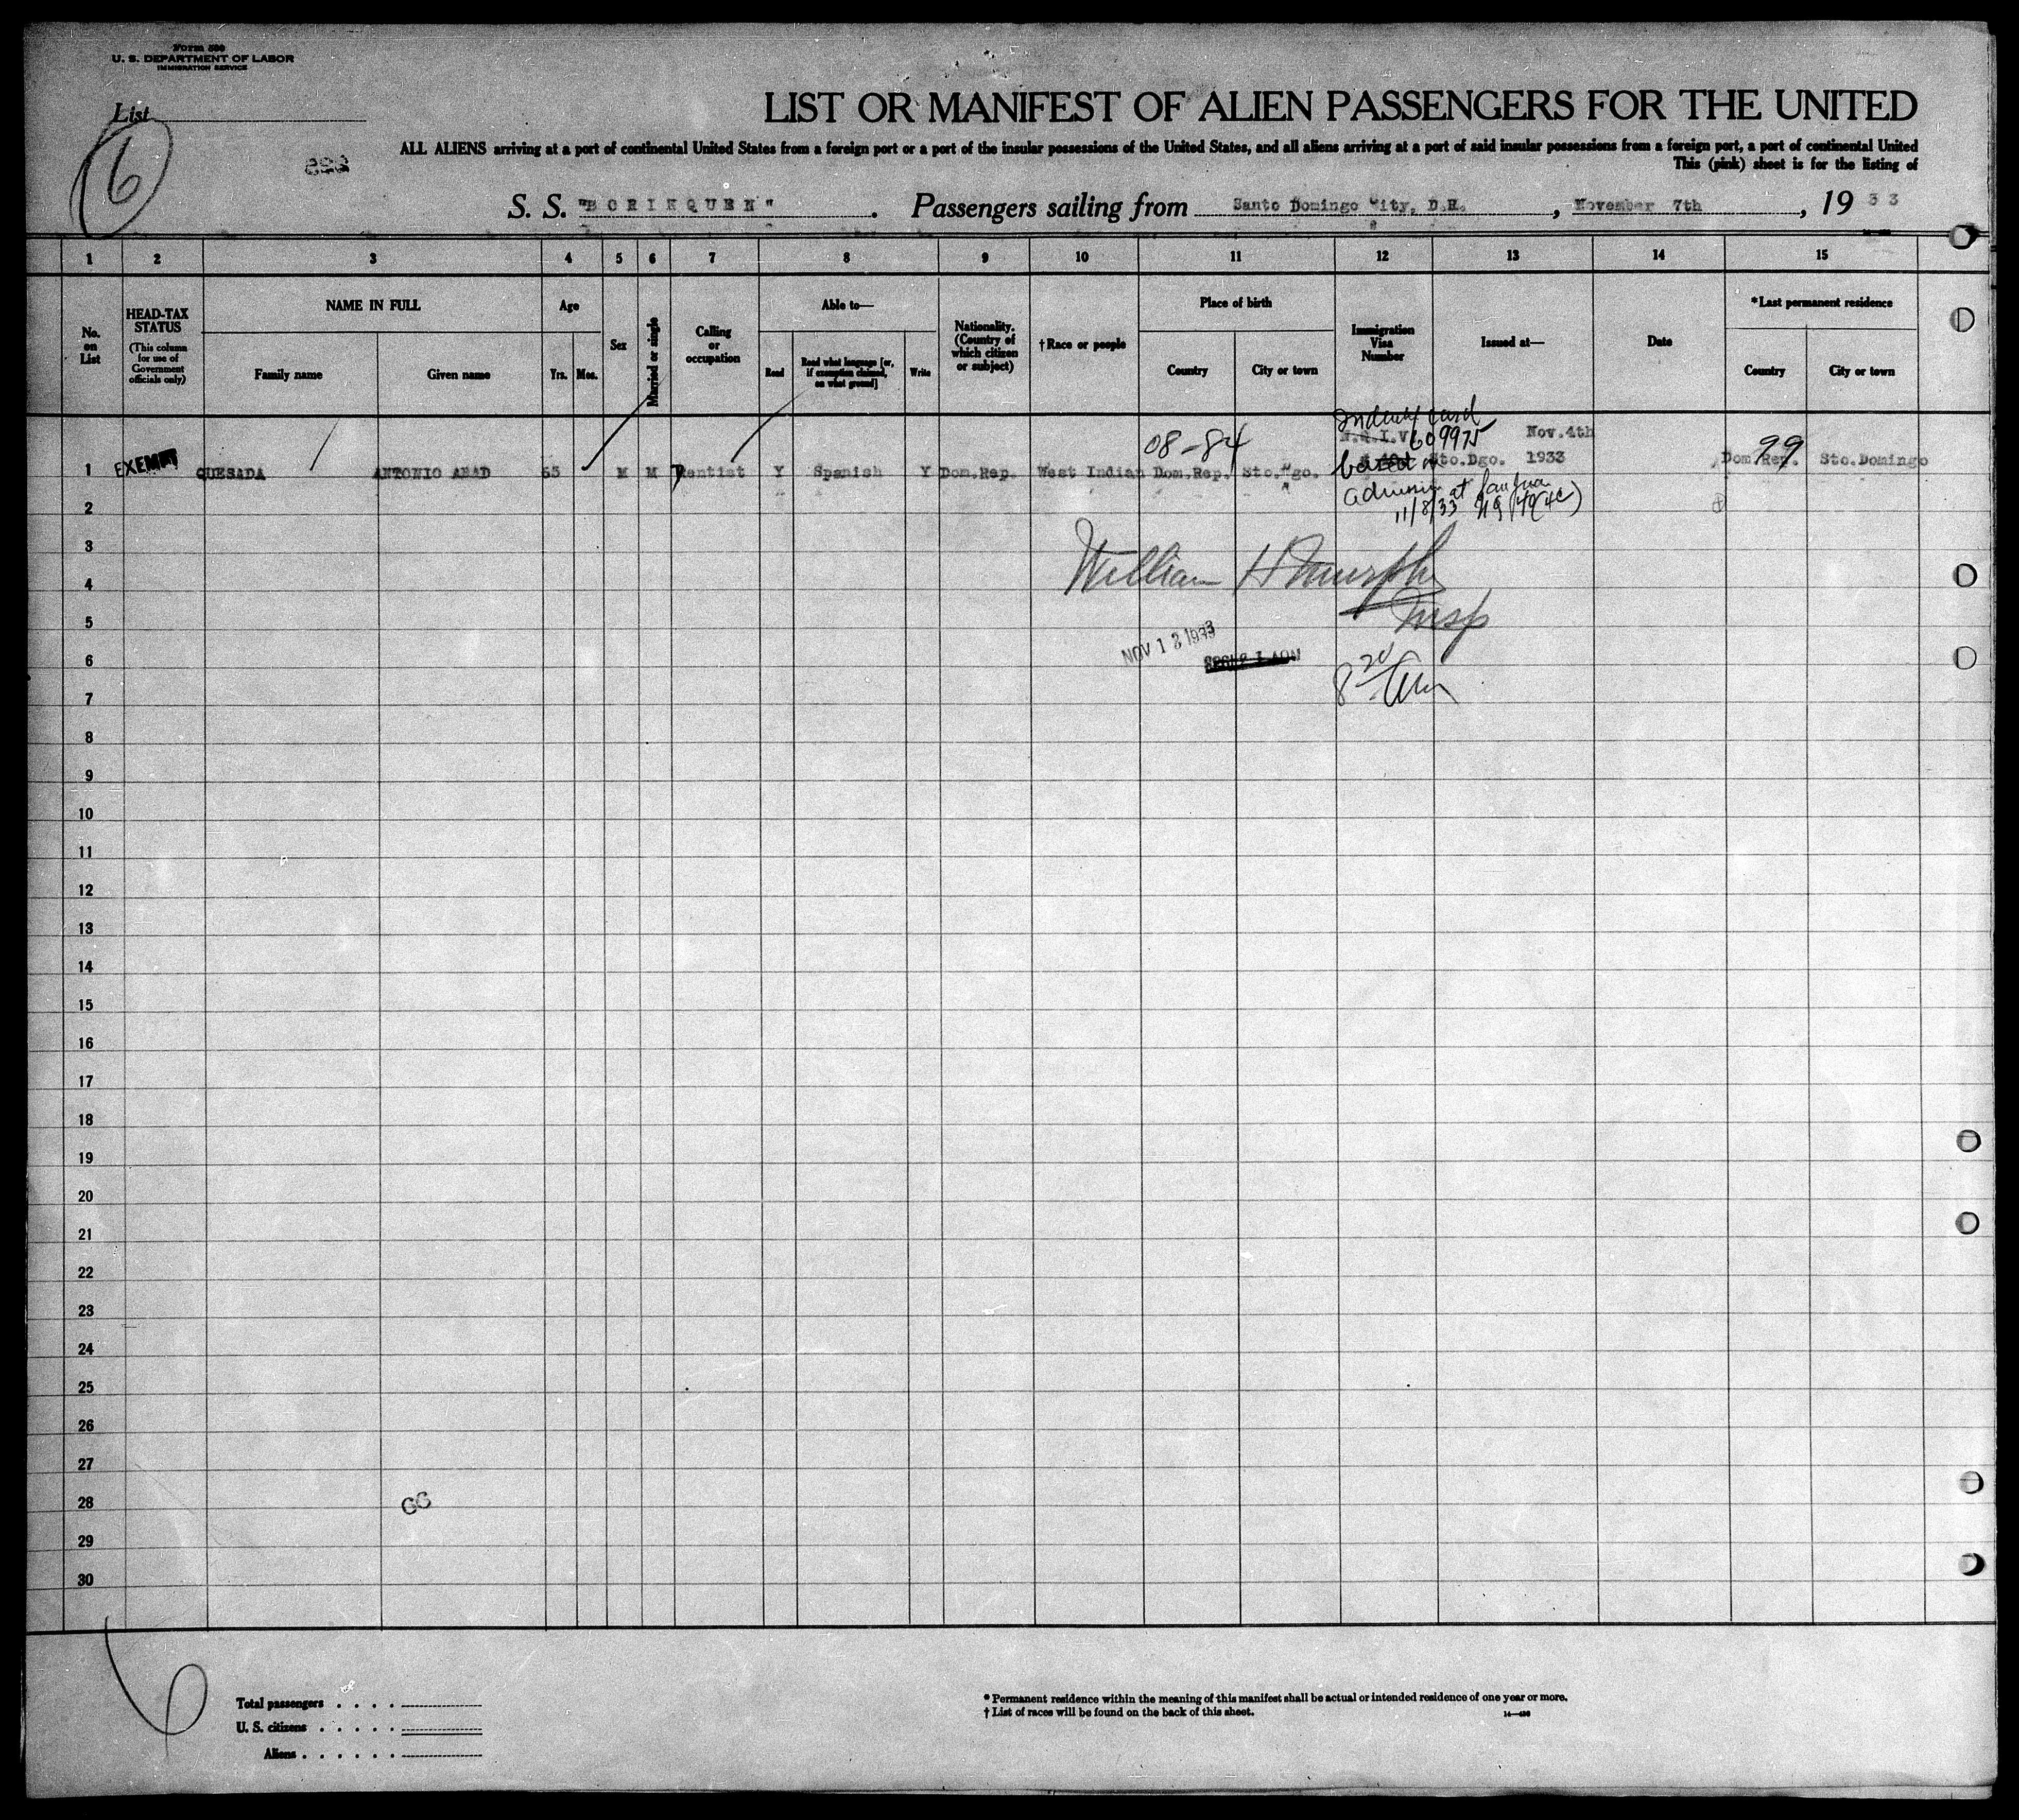 Form 500
U. S. DEPARTMENT OF LABOR
IMMIGRATION SERVICE
List
6
LIST OR MANIFEST OF ALIEN PASSENGERS FOR THE UNITED
ALL ALIENS arriving at a port of continental United States from a foreign port or a port of the insular possessions of the United States, and all aliens arriving at a port of said insular possessions from a foreign port, a port of continental United
This (pink) sheet is for the listing of
S. S. "BORINQUEN". Passengers sailing from Santo Domingo City, D.R., November 7th, 1933
1 2 3 4 5 6 7 8 9 10 11 12 13 14 15
No. on List
HEAD-TAX STATUS
(This column for use of Government officials only)
NAME IN FULL
Family name
Given name
Age
Yrs. Mos.
Sex
Married or single
Calling or occupation
Able to—
Read
Read what language [or, if exemption claimed, on what ground]
Write
Nationality. (Country of which citizen or subject)
†Race or people
Place of birth
Country
City or town
Immigration Visa Number
Issued at—
Date
*Last permanent residence
Country
City or town
08-84
609975 Nov. 4th
99
1 EXEMPT QUESADA ANTONIO ABAD M M Rentist Y Spanish Y Dom.Rep. West Indian Dom.Rep. Sto.Dgo. Sto.Dgo. 1933 Dom.Rep. Sto.Domingo
at San Juan
11/8/33
2
3
William H Murphy
4
5
Insp
NOV 12 1933
6
8 20 am
7
8
9
10
11
12
13
14
15
16
17
18
19
20
21
22
23
24
25
26
27
28
29
30
Total passengers . . . .
U. S. citizens . . . . .
Aliens . . . . . .
* Permanent residence within the meaning of this manifest shall be actual or intended residence of one year or more.
† List of races will be found on the back of this sheet.